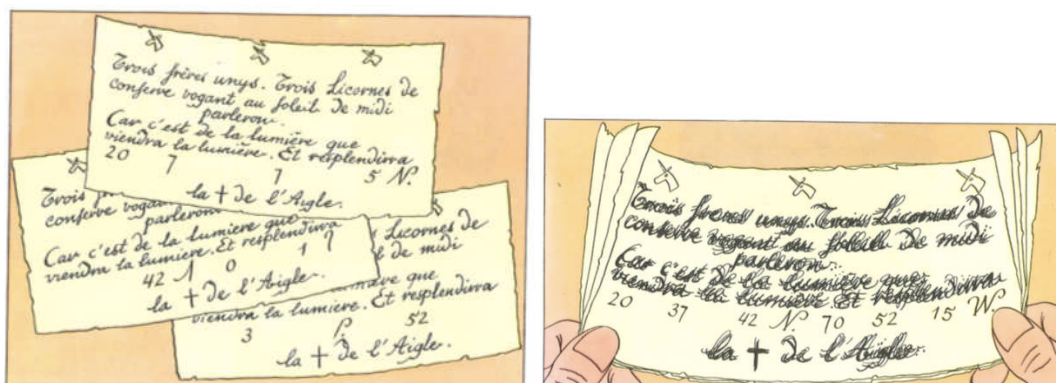 Trois frères unys. Trois Licornes de
conſerve vogant au ſoleil de midi
parleron.
Car c'est de la lumière que
viendra la lumière. Et resplendira
20 7 7 5 N.
la ✝ de l'Aigle.
Trois
conſerve
parleron
Car c'est de la lumière que
viendra la lumière. Et resplendira
42 0 1
la ✝ de l'Aigle.
Licornes de
de midi
que
viendra la lumière. Et resplendira
3 52
la ✝ de l'Aigle.
Trois frères unys. Trois Licornes de
conſerve vogant au ſoleil de midi
parleron.
Car c'est de la lumière que
viendra la lumière. Et resplendira
20 37 42 N. 70 52 15 W.
la ✝ de l'Aigle.